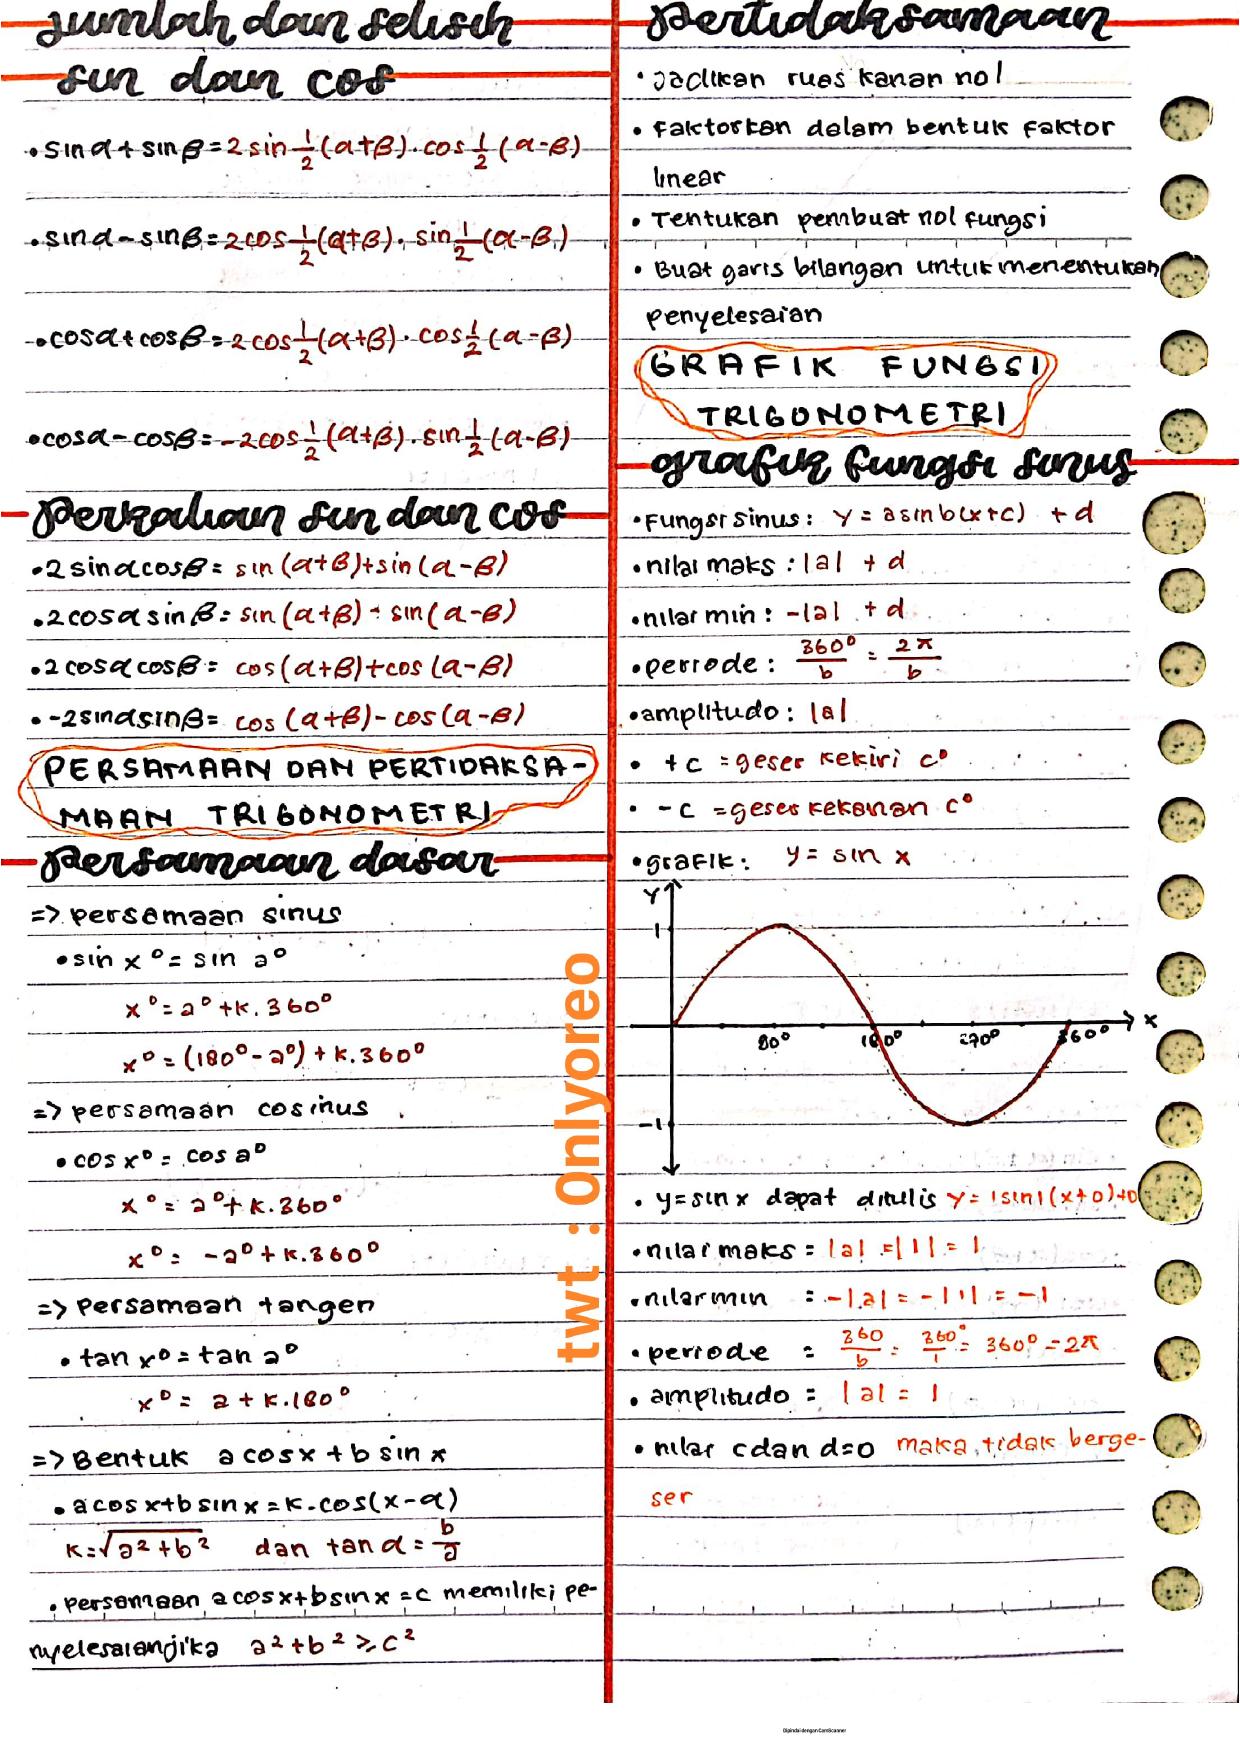 Jumlah dan selisih
sin dan cos
• sin α + sin β = 2 sin 1/2 (α+β) . cos 1/2 (α-β)
• sin α - sin β = 2 cos 1/2 (α+β) . sin 1/2 (α-β)
• cos α + cos β = 2 cos 1/2 (α+β) . cos 1/2 (α-β)
• cos α - cos β = -2 cos 1/2 (α+β) . sin 1/2 (α-β)
perkalian sin dan cos
• 2 sin α cos β = sin (α+β) + sin (α-β)
• 2 cos α sin β = sin (α+β) - sin (α-β)
• 2 cos α cos β = cos (α+β) + cos (α-β)
• -2 sin α sin β = cos (α+β) - cos (α-β)
PERSAMAAN DAN PERTIDAKSA-
MAAN TRIGONOMETRI
persamaan dasar
=> persamaan sinus
• sin x° = sin a°
x° = a° + k. 360°
x° = (180° - a°) + k. 360°
=> persamaan cosinus
• cos x° = cos a°
x° = a° + k. 360°
x° = -a° + k. 360°
=> persamaan tangen
• tan x° = tan a°
x° = a + k. 180°
=> Bentuk a cos x + b sin x
• a cos x + b sin x = k. cos (x - α)
k = √a² + b² dan tan α = b/a
• persamaan a cos x + b sin x = c memiliki pe-
nyelesaian jika a² + b² ≥ c²
pertidaksamaan
• Jadikan ruas kanan nol
• Faktorkan dalam bentuk faktor
linear
• Tentukan pembuat nol fungsi
• Buat garis bilangan untuk menentukan
penyelesaian
GRAFIK FUNGSI
TRIGONOMETRI
grafik fungsi sinus
• Fungsi sinus : y = a sin b (x+c) + d
• nilai maks : |a| + d
• nilai min : -|a| + d
• periode : 360°/b = 2π/b
• amplitudo : |a|
• +c = geser kekiri c°
• -c = geser kekanan c°
• grafik : y = sin x
Y
1
90° 180° 270° 360° x
-1
• y = sin x dapat ditulis y = 1 sin 1 (x+0)+0
• nilai maks = |a| = |1| = 1
• nilai min = -|a| = -|1| = -1
• periode = 360/b = 360°/1 = 360° = 2π
• amplitudo = |a| = 1
• nilai c dan d = 0 maka tidak berge-
ser
twt : Onlyoreo
Dipindai dengan CamScanner